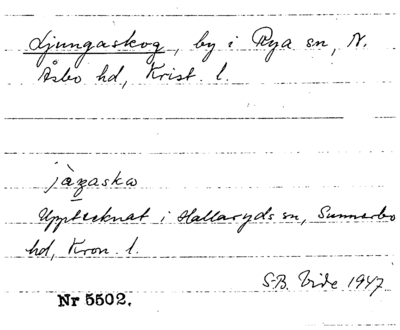 Ljungaskog, by i Rya sn, N.
Åsbo hd, Krist. l.
jàŋaskω
Upptecknat i Hallaryds sn, Sunnerbo
hd, Kron. l.
S-B. Vide 1947
Nr 5502.